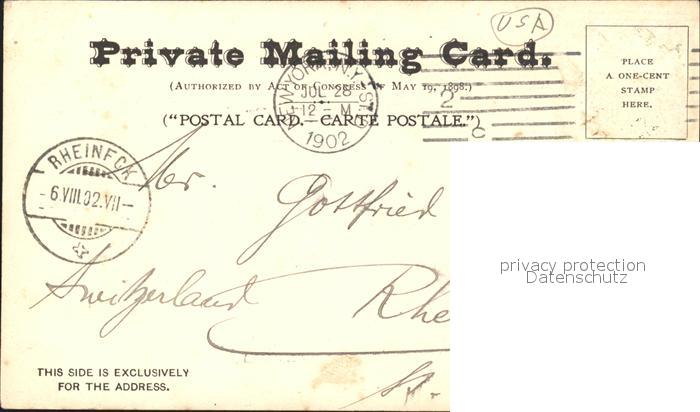 USA
Private Mailing Card.
(Authorized by Act of Congress of May 19, 1898.)
("POSTAL CARD.—CARTE POSTALE.")
PLACE
A ONE-CENT
STAMP
HERE.
NEW YORK, N.Y.
JUL 26
12 - M
1902
2
C
RHEINECK
6.VIII.02.VII
Mr. Gottfried
Switzerland Rhe
St.
privacy protection
Datenschutz
THIS SIDE IS EXCLUSIVELY
FOR THE ADDRESS.